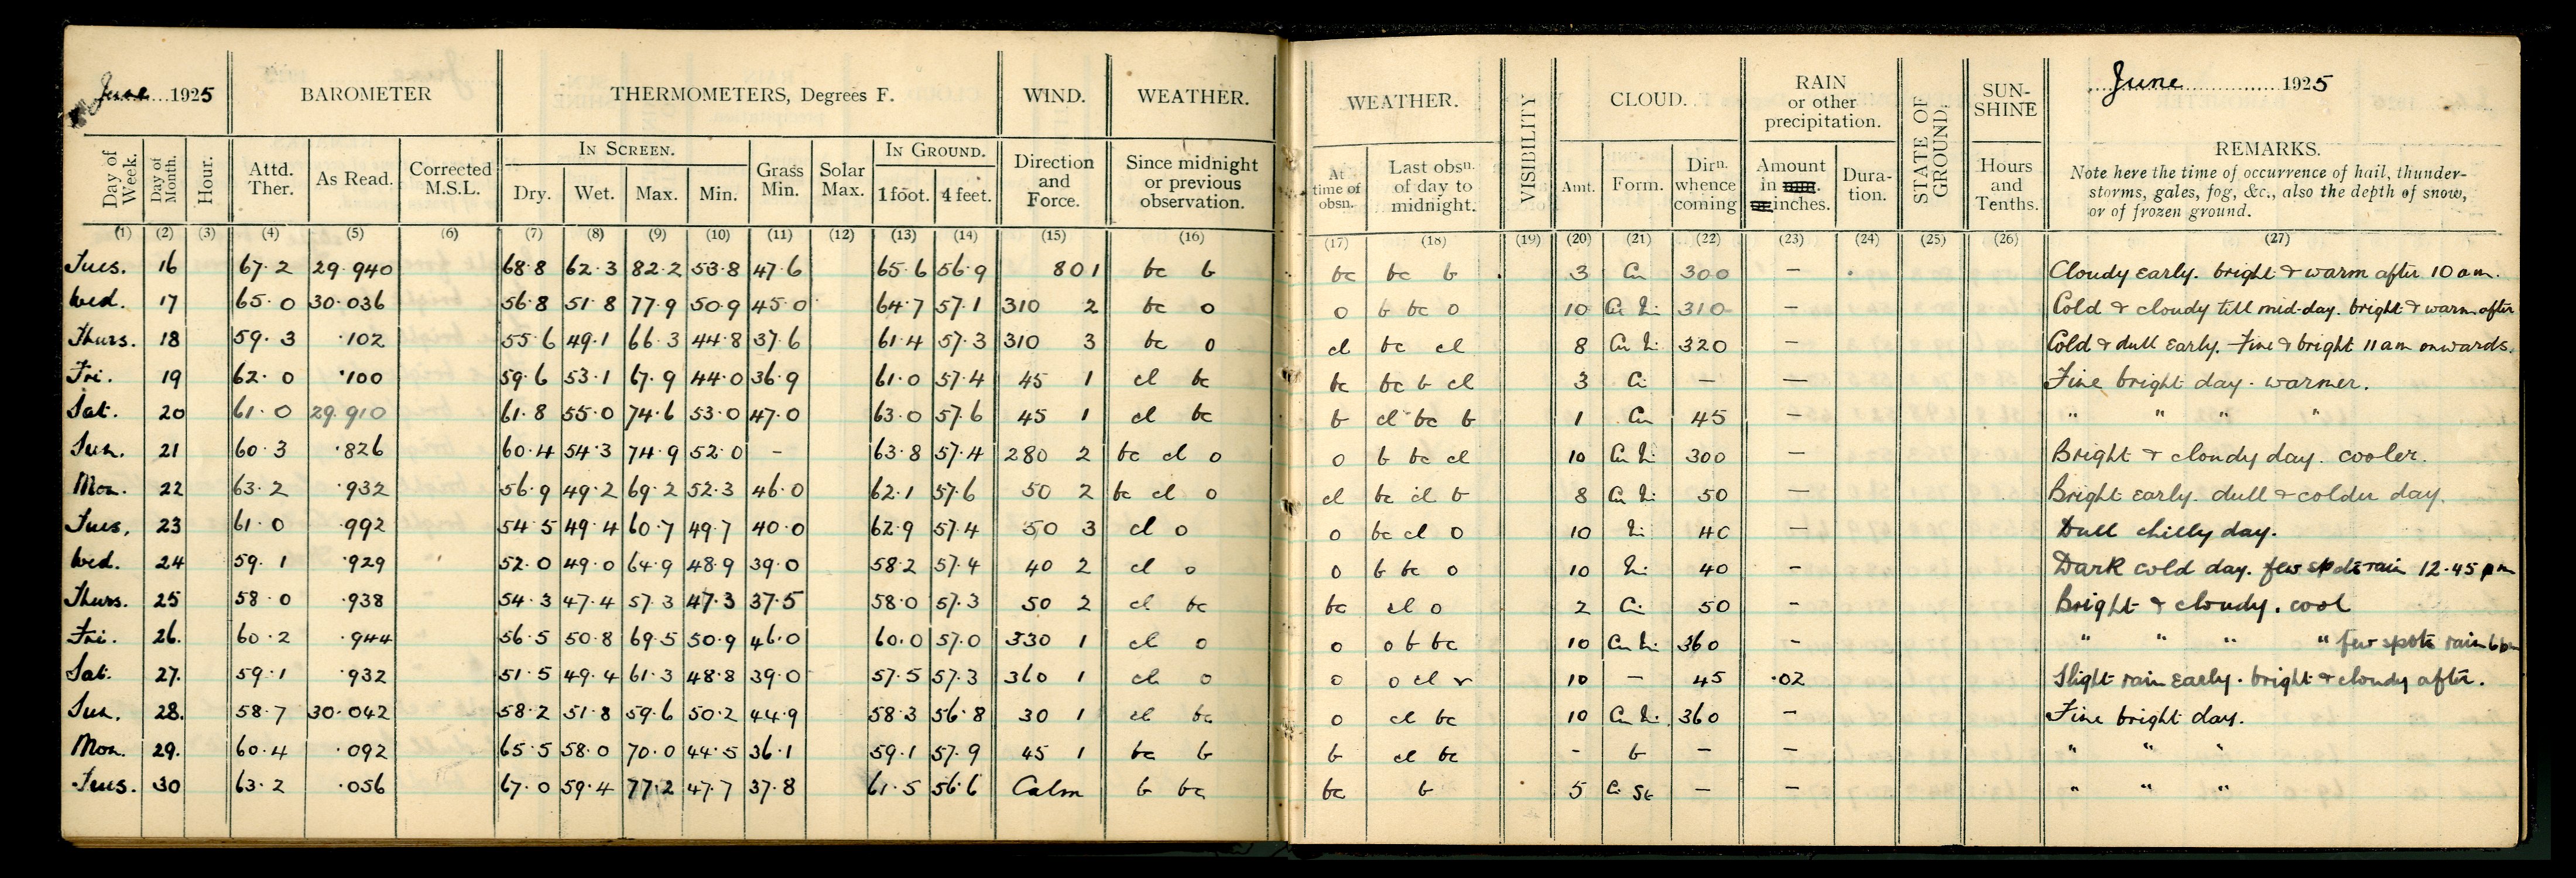 June 1925 BAROMETER THERMOMETERS, Degrees F. WIND. WEATHER.
Day of Week. Day of Month. Hour. Attd. Ther. As Read. Corrected M.S.L. IN SCREEN. Dry. Wet. Max. Min. Grass Min. Solar Max. IN GROUND. 1 foot. 4 feet. Direction and Force. Since midnight or previous observation.
(1) (2) (3) (4) (5) (6) (7) (8) (9) (10) (11) (12) (13) (14) (15) (16)
Tues. 16 67.2 29.940 68.8 62.3 82.2 53.8 47.6 65.6 56.9 80 1 bc b
Wed. 17 65.0 30.036 56.8 51.8 77.9 50.9 45.0 64.7 57.1 310 2 bc o
Thurs. 18 59.3 .102 55.6 49.1 66.3 44.8 37.6 61.4 57.3 310 3 bc o
Fri. 19 62.0 .100 59.6 53.1 67.9 44.0 36.9 61.0 57.4 45 1 cl bc
Sat. 20 61.0 29.910 61.8 55.0 74.6 53.0 47.0 63.0 57.6 45 1 cl bc
Sun. 21 60.3 .826 60.4 54.3 74.9 52.0 - 63.8 57.4 280 2 bc cl o
Mon. 22 63.2 .932 56.9 49.2 69.2 52.3 46.0 62.1 57.6 50 2 bc cl o
Tues. 23 61.0 .992 54.5 49.4 60.7 49.7 40.0 62.9 57.4 50 3 cl o
Wed. 24 59.1 .929 52.0 49.0 64.9 48.9 39.0 58.2 57.4 40 2 cl o
Thurs. 25 58.0 .938 54.3 47.4 57.3 47.3 37.5 58.0 57.3 50 2 cl bc
Fri. 26. 60.2 .944 56.5 50.8 69.5 50.9 46.0 60.0 57.0 330 1 cl o
Sat. 27. 59.1 .932 51.5 49.4 61.3 48.8 39.0 57.5 57.3 360 1 cl o
Sun. 28. 58.7 30.042 58.2 51.8 59.6 50.2 44.9 58.3 56.8 30 1 cl bc
Mon. 29. 60.4 .092 65.5 58.0 70.0 44.5 36.1 59.1 57.9 45 1 bc b
Tues. 30 63.2 .056 67.0 59.4 77.2 47.7 37.8 61.5 56.6 Calm b bc
WEATHER. VISIBILITY CLOUD. RAIN or other precipitation. STATE OF GROUND. SUN-SHINE June 1925
At time of obsn. Last obsn. of day to midnight. Amt. Form. Dirn. whence coming Amount in inches. Dura-tion. Hours and Tenths. REMARKS.
Note here the time of occurrence of hail, thunder-
storms, gales, fog, &c., also the depth of snow,
or of frozen ground.
(17) (18) (19) (20) (21) (22) (23) (24) (25) (26) (27)
bc bc b 3 Cu 300 — Cloudy early. bright & warm after 10 am.
o b bc o 10 Cu Ni 310 — Cold & cloudy till mid-day. bright & warm after
cl bc cl 8 Cu Ni 320 — Cold & dull early. Fine & bright 11 am onwards.
bc bc b cl 3 Ci — — Fine bright day. warmer.
b cl bc b 1 Cu 45 — " " " "
o b bc cl 10 Cu Ni 300 — Bright & cloudy day. cooler.
cl bc cl b 8 Cu Ni 50 — Bright early. dull & colder day.
o bc cl o 10 Ni 40 — Dull chilly day.
o b bc o 10 Ni 40 — Dark cold day. few spots rain 12.45 pm
bc cl o 2 Ci 50 — Bright & cloudy. cool
o o b bc 10 Cu Ni 360 — " " " " few spots rain
o o cl r 10 — 45 .02 Slight rain early. bright & cloudy after.
o cl bc 10 Cu Ni 360 — Fine bright day.
b cl bc - b — — " " "
bc b 5 Ci St — — " " "